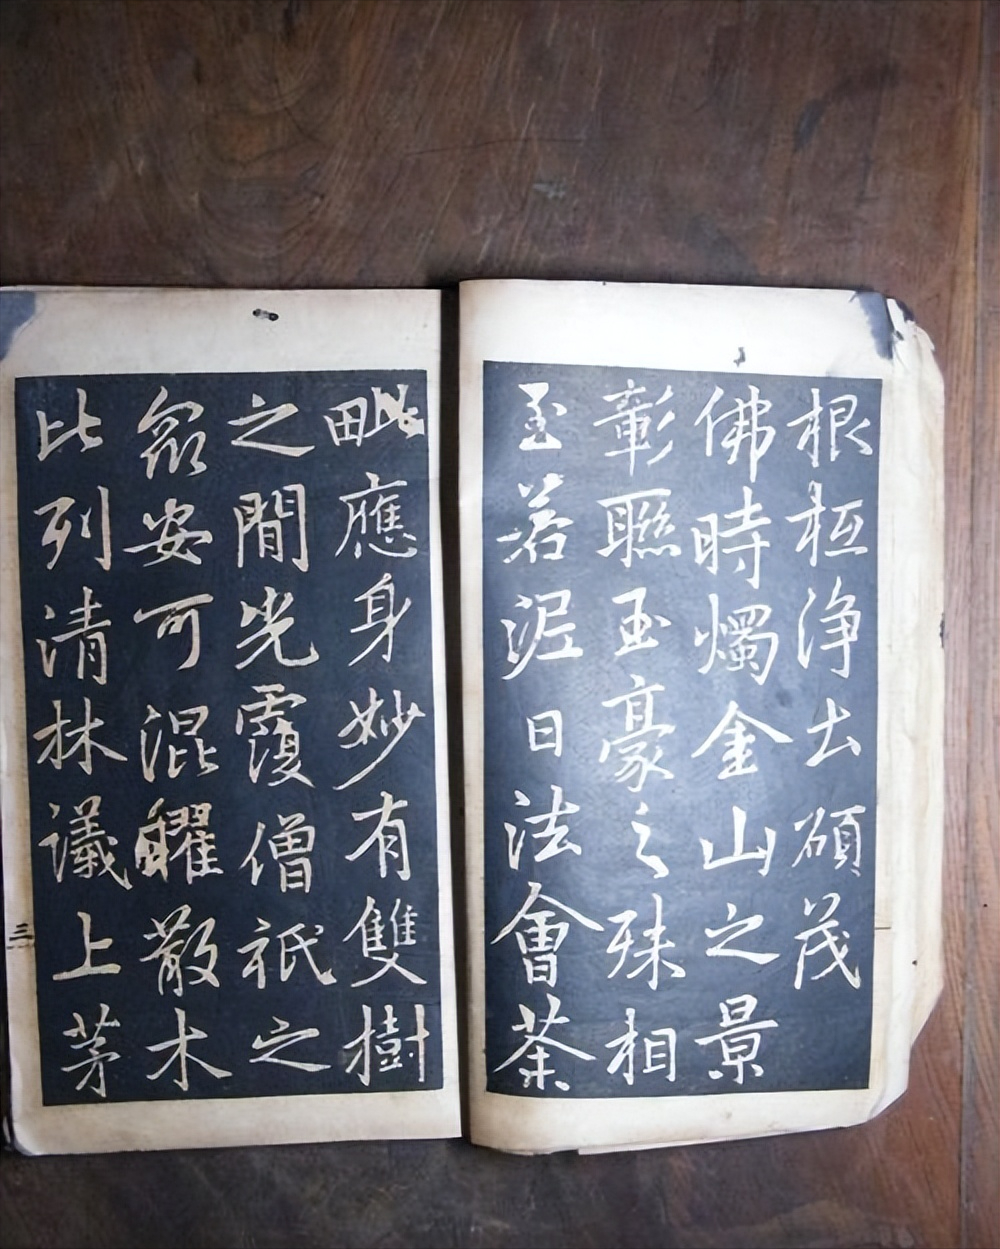 根柢浄土碩茂
佛時燭金山之景
彰聯玉豪之殊相
至若泥日法會荼
毗應身妙有雙樹
之間光覆僧祇之
衆安可混曜散木
比列清林議上茅
三